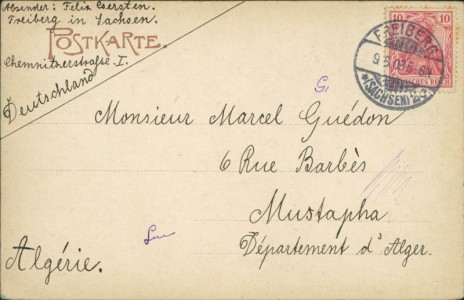 Absender: Felix Coersten.
Freiberg in Sachsen.
POSTKARTE.
Chemnitzerstraße I.
Deutschland
10 10
DEUTSCHES REICH
FREIBERG
(SACHSEN)
Monsieur Marcel Guédon
6 Rue Barbès
Mustapha
Département d'Alger.
Algérie.